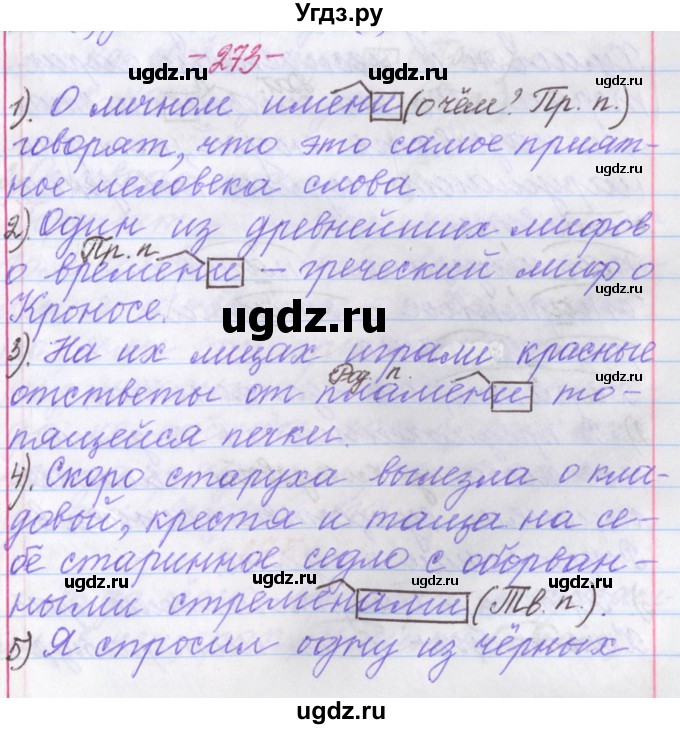 Угдз.ру
-273-
ugdz.ru ugdz.ru
1). О личном имени (о чём? Пр. п.)
говорят, что это самое прият-
ugdz.ru ugdz.ru
ное человека слова
2). Один из древнейших мифов
Пр. п.
о времени - греческий миф о
ugdz.ru
Кроносе.
3). На их лицах играли красные
ugdz.ru ugdz.ru
Род. п.
отстветы от пламени то-
пящейся печки.
ugdz.ru
4). Скоро старуха вылезла о кла-
довый, крестя и таща на се-
бе старинное седло с оборван-
ugdz.ru ugdz.ru
ными стременами (Тв. п.).
5) Я спросил одну из чёрных
ugdz.ru ugdz.ru
ugdz.ru